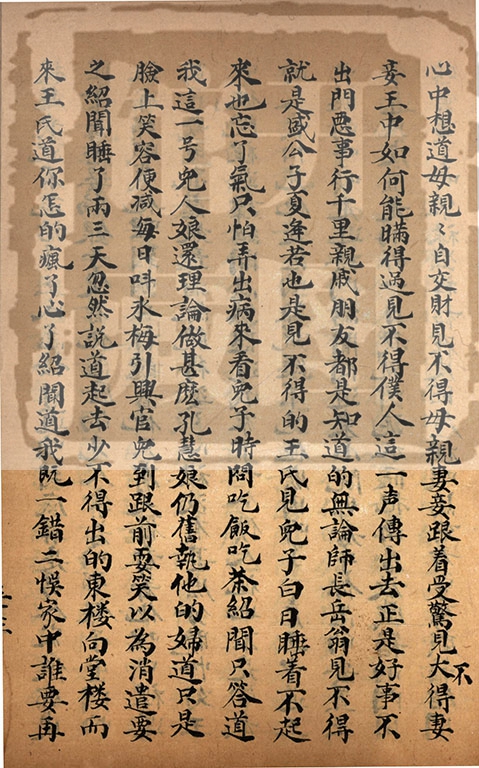 心中想道母親〻自交財見不得母親妻妾跟着受驚見大不得妻
妾王中如何能瞞得過見不得僕人這一声傳出去正是好事不
出門惡事行千里親戚朋友都是知道的無論師長岳翁見不得
就是盛公子夏逢若也是見不得的王氏見兒子白日睡着不起
來也忘了氣只怕弄出病來看兒子時問吃飯吃茶紹聞只答道
我這一号兒人娘還理論做甚麽孔慧娘仍舊執他的婦道只是
臉上笑容便减每日呌氷梅引興官兒到跟前耍笑以為消遣要
之紹聞睡了兩三天忽然說道起去少不得出的東楼向堂楼而
來王氏道你怎的瘋了心了紹聞道我既一錯二悞家中誰要再